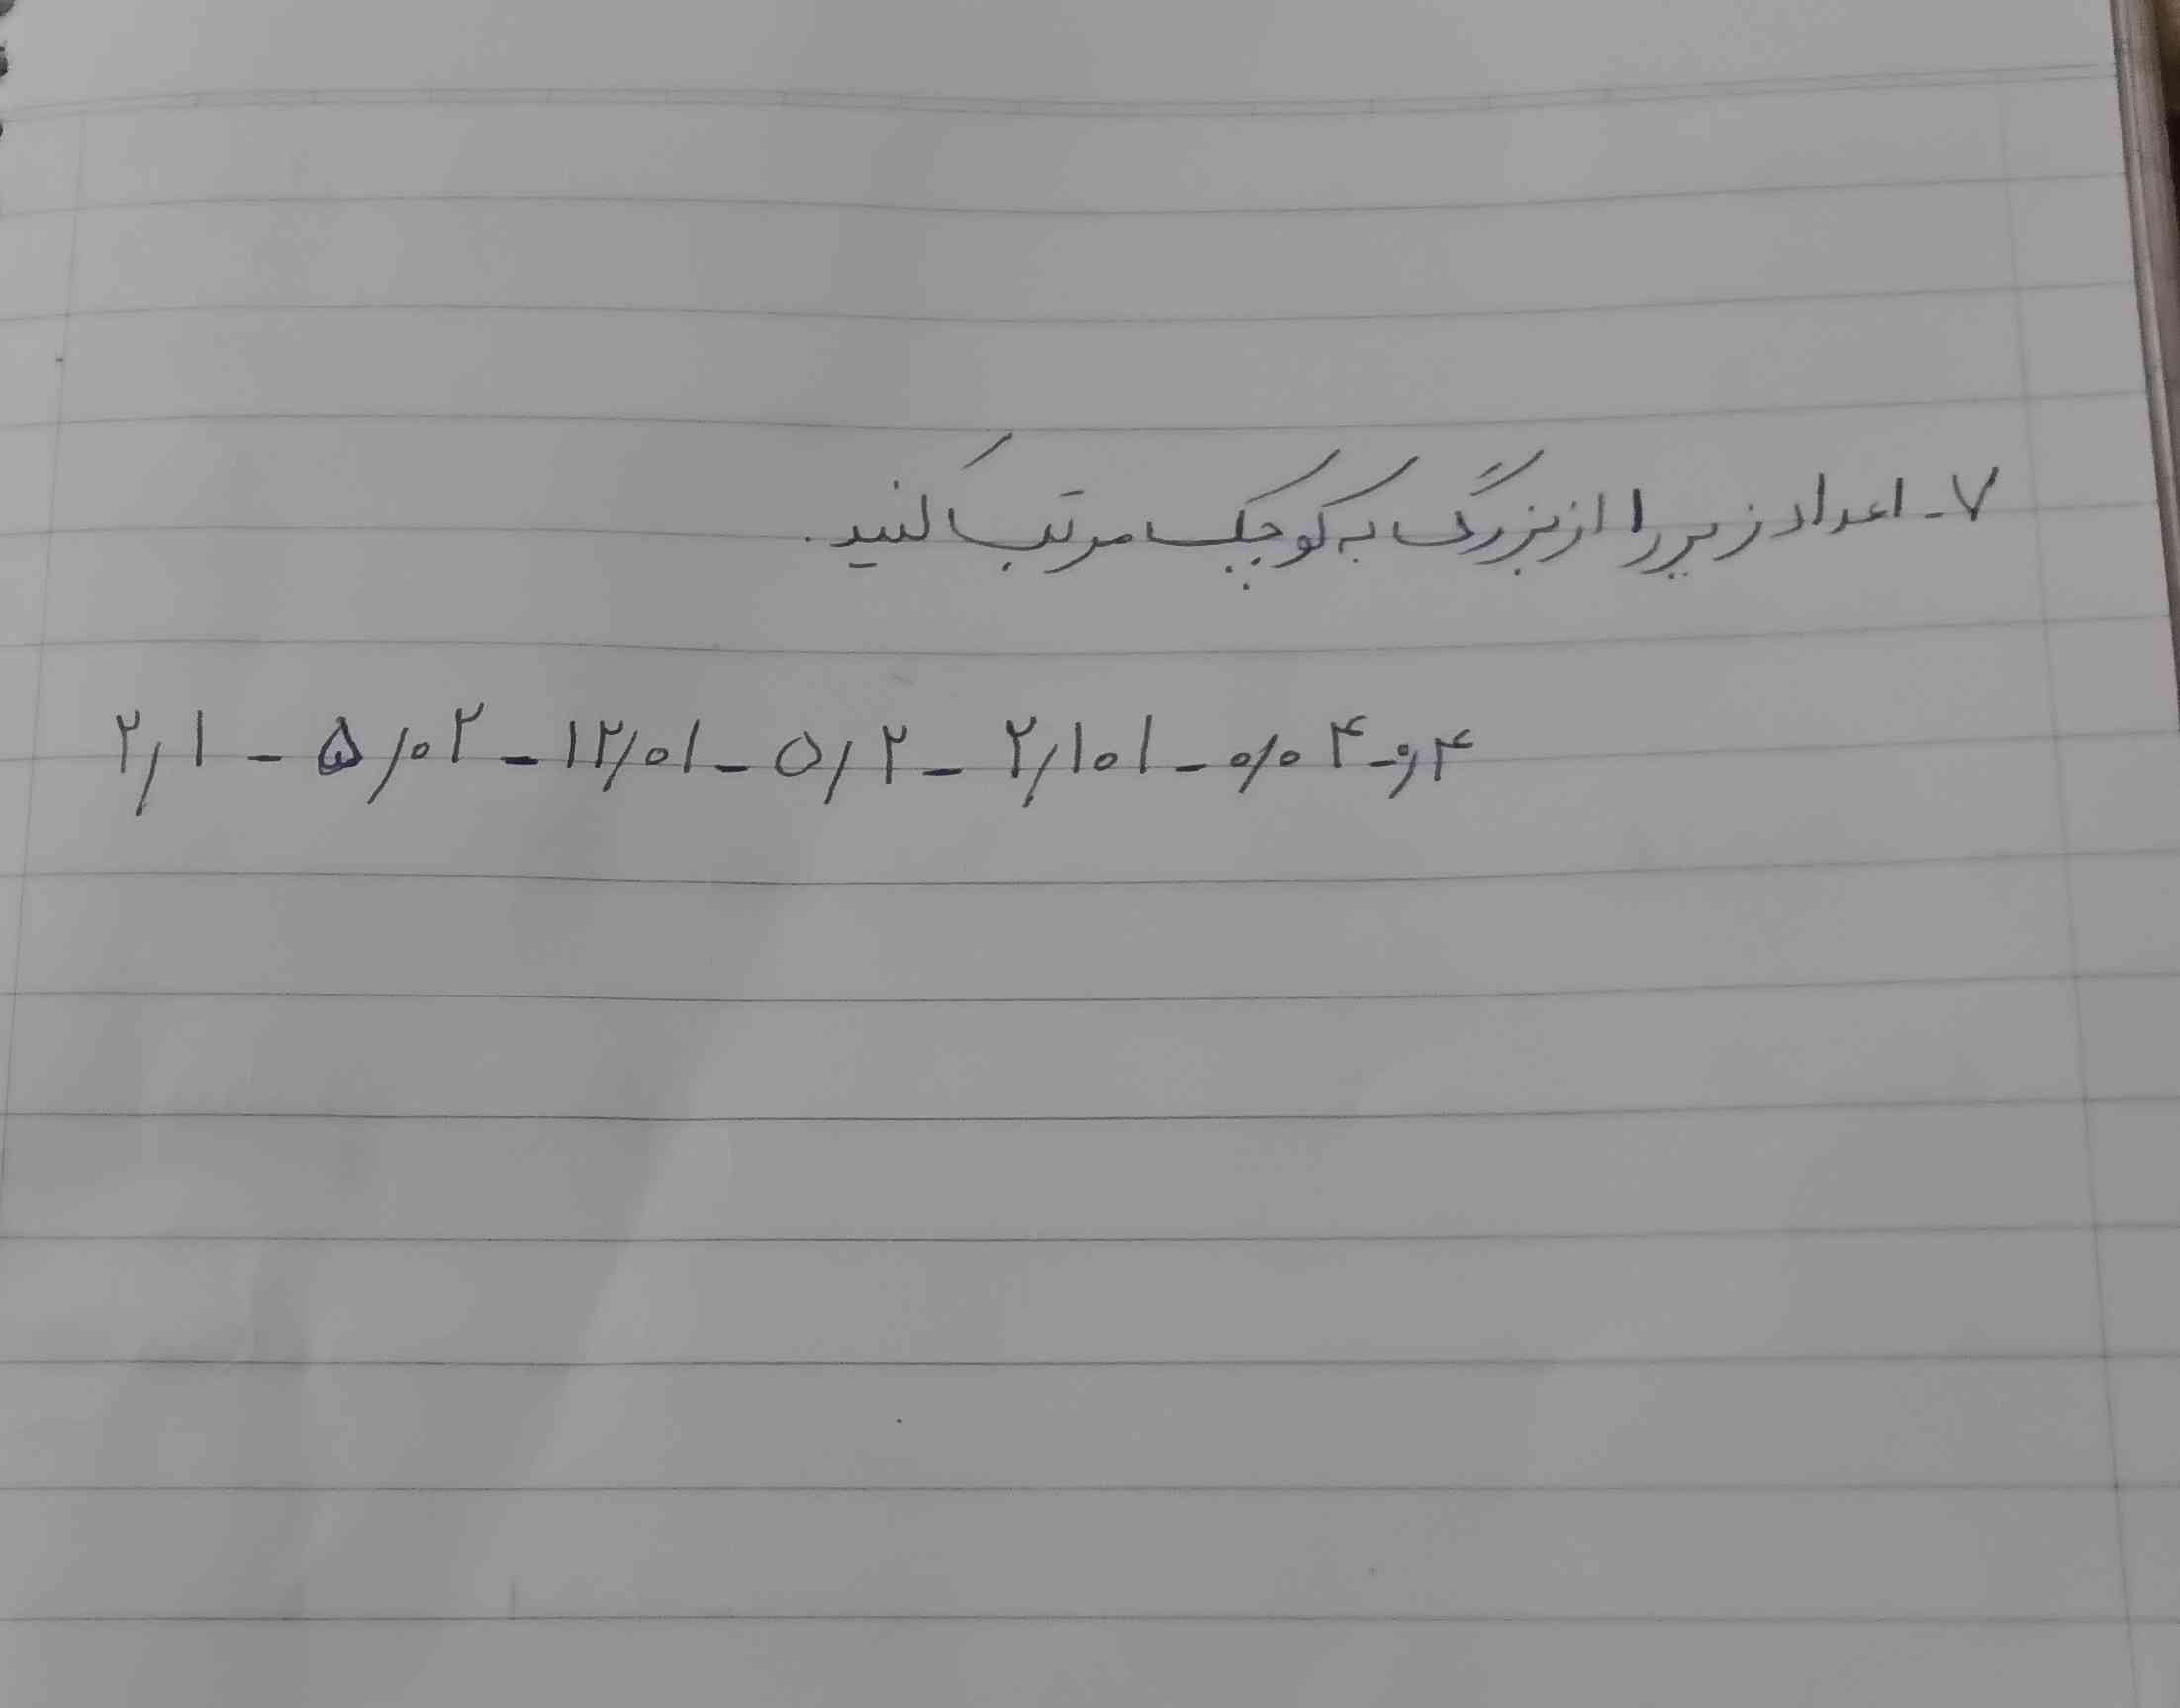 ۷- اعداد زیر را از بزرگ به کوچک مرتب کنید.
۲/۱ - ۵/۰۲ - ۱۲/۰۱ - ۵/۲ - ۲/۱۰۱ - ۰/۰۴ - ۰/۴